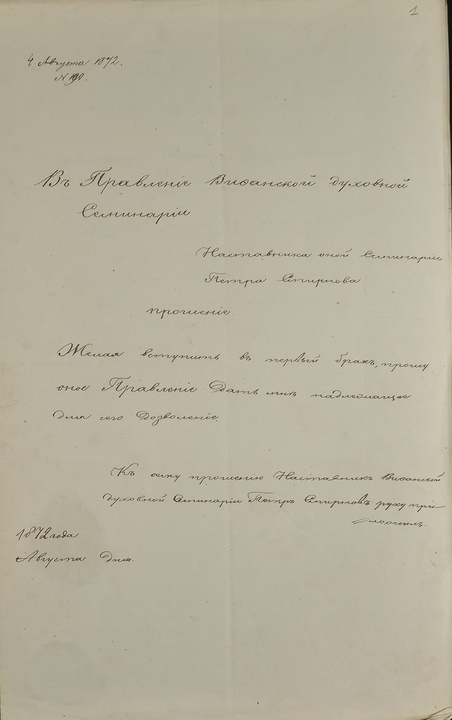 1
4 Августа 1872.
№ 190.
Въ Правленіе Виѳанской духовной
Семинаріи
Наставника оной Семинаріи
Петра Смирнова
прошеніе.
Желая вступить въ первый бракъ, прошу
оное Правленіе дать мнѣ надлежащее
для сего дозволеніе.
Къ сему прошенію Наставникъ Виѳанской
духовной Семинаріи Петръ Смирновъ руку при-
ложилъ.
1872 года
Августа дня.